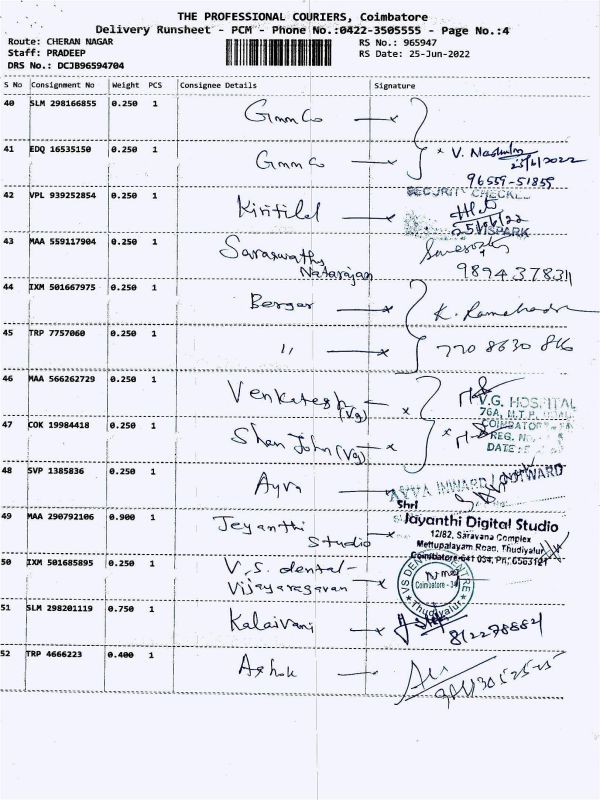 THE PROFESSIONAL COURIERS, Coimbatore
Delivery Runsheet - PCM - Phone No.:0422-3505555 - Page No.:4
Route: CHERAN NAGAR RS No.: 965947
Staff: PRADEEP RS Date: 25-Jun-2022
DRS No.: DCJB96594704
S No Consignment No Weight PCS Consignee Details Signature
40 SLM 298166855 0.250 1 Gmm Co
41 EDQ 16535150 0.250 1 Gmm Co
25/6/2022
96559-51859
42 VPL 939252854 0.250 1 Kiritilal
SECURITY CHECKED
25/6/22
SPARK
43 MAA 559117904 0.250 1 Saraswathy
Natarajan
44 IXM 501667975 0.250 1 Berger
45 TRP 7757060 0.250 1 "
770 8630 816
46 MAA 566262729 0.250 1 Venkatesh (Vg)
V.G. HOSPITAL
47 COK 19984418 0.250 1 Shan John (Vg)
REG. No
DATE:
48 SVP 1385836 0.250 1 Ayya
AYYA INWARD / OUTWARD
49 MAA 290792106 0.900 1 Jeyanthi
Studio
Shri
Jayanthi Digital Studio
12/82, Saravana Complex
Mettupalayam Road, Thudiyalur
Coimbatore-641 034, Ph: 6563121
50 IXM 501685895 0.250 1 V.S. dental-
Vijayaragavan
VS DENTAL CENTRE
Coimbatore - 34
Thudiyalur
51 SLM 298201119 0.750 1 Kalaivani
52 TRP 4666223 0.400 1 Ashok